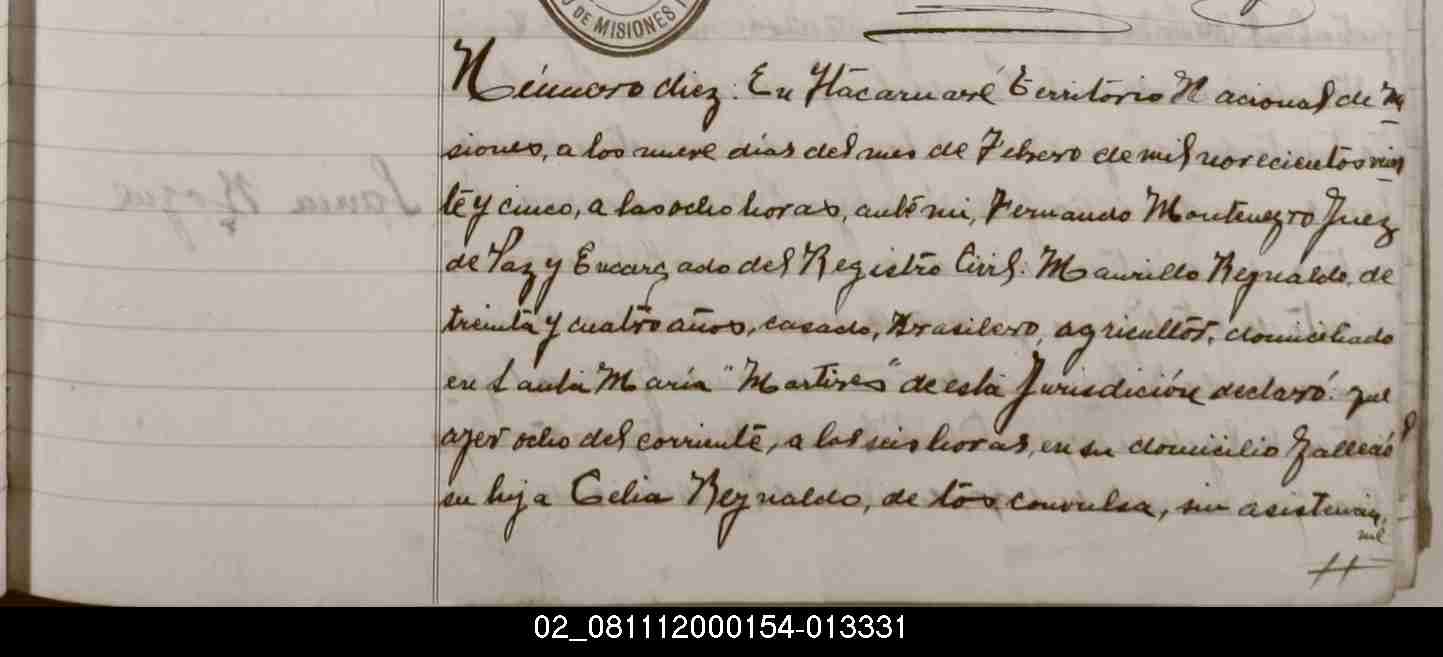 O DE MISIONES
Número diez: En Itacaruaré Territorio Nacional de Mi
siones, a los nueve días del mes de Febrero de mil novecientos vein
te y cinco, a las ocho horas, ante mi, Fernando Montenegro Juez
de Paz y Encargado del Registro Civil: Maurillo Reynaldo, de
treinta y cuatro años, casado, Brasilero, agricultor, domiciliado
en Santa María "Martires" de esta Jurisdición declaró: que
ayer ocho del corriente, a las seis horas, en su domicilio falleció
su hija Celia Reynaldo, de tos convulsa, sin asistencia
02_081112000154-013331